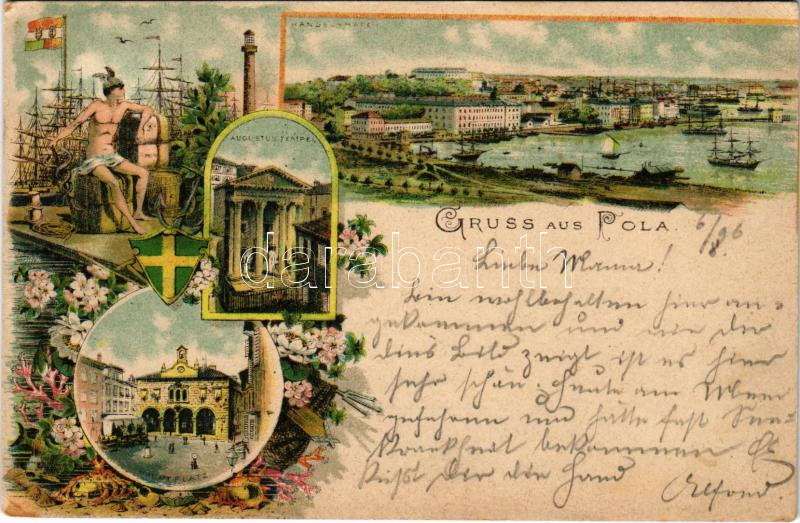 HANDELSHAFEN
AUGUSTUS TEMPEL
GRUSS AUS POLA.
6/8. 96
Liebe Mama!
Bin wohlbehalten hier an-
gekommen und wie Dir
dies Bild zeigt ist es hier
sehr schön. Heute am Meer
gefahren und hatte fast See-
krankheit bekommen. Es
küßt Dir die Hand
Alfond.
darabanth